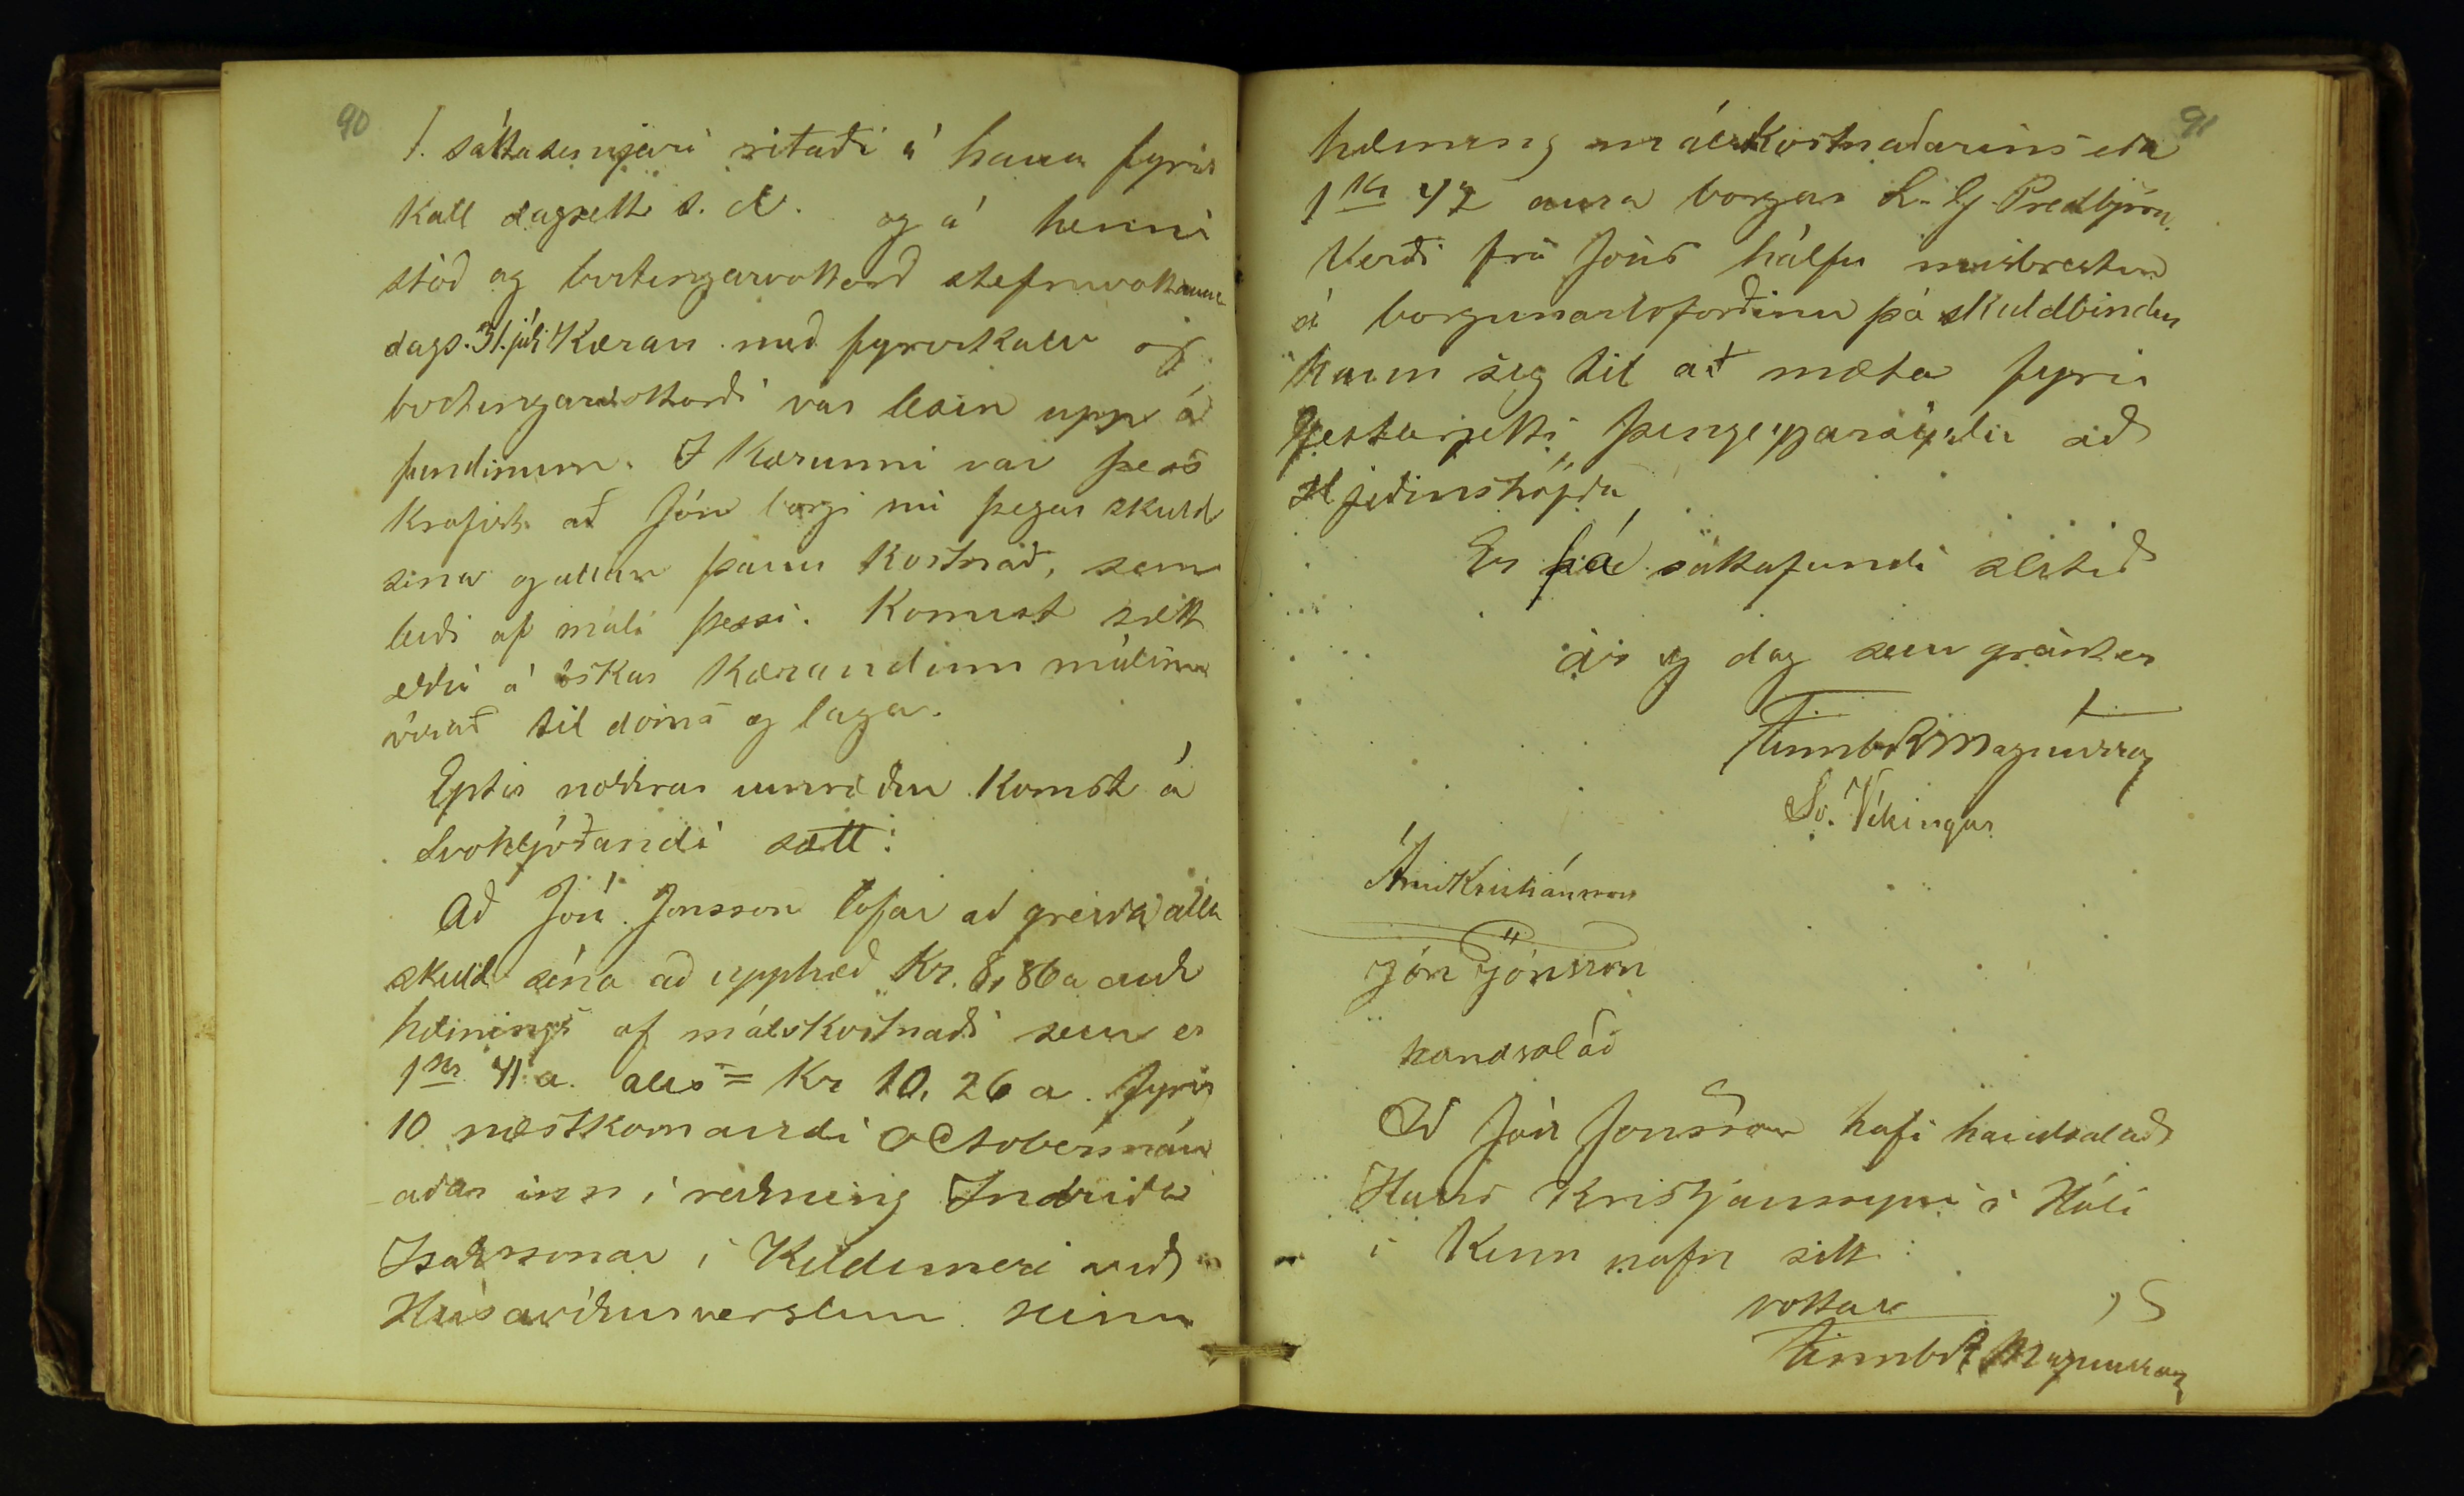 90
1. sáttasemjari ritaði á hana fyrir
kall dagsett s. d. og á henni
stóð og birtingarvottorð stefnuvottanna
dags. 31. júlí Kæran með fyrirkalli og
birtingarvottorði var lesin upp á
fundinum. I Kærunni var þess
krafist að Jón borgi nú þegar skuld
sína og allan þann Kostnað, sem
leiði af máli þessi. Komist sætt
ekki á óskar Kærandinn málinu
vísað til dóms og laga.
Eptir nokkrar umræður Komst á
Svohljóðandi sætt:
Að Jón Jonsson lofar að greiða alla
skuld sína að upphæð Kr. 8,86 a auk
helmings af málskostnaði sem er
1 kr 41 a. alls = Kr 10, 26 a. fyrir
10 næstkomandi Octobermán
aðar inn í reikning Indriða
Isakssonar í Keldunesi við
Húsavíkurverslun hinn
91
helming málskostnaðarins eða
1 Kr 42 aura borgar S. G. Predbjörn.
Verði frá Jóns hálfu misbrestur
á borgunarloforðinu þá skuldbindur
hann sig til að mæta fyrir
Gestarjetti Þingeyjarsýslu að
Hjeðinshöfða
Er þá sáttafundi slitið
ár og dag sem greint er
Finnb. R Magnússon
Sv. Víkingur
Árni Kristiánsson
Jón Jónsson
handsalað
Að Jón Jonsson hafi handsalað
Kristjánssyni á Hóli
í Kinn nafn sitt
vottar
Finnb R Magnusson